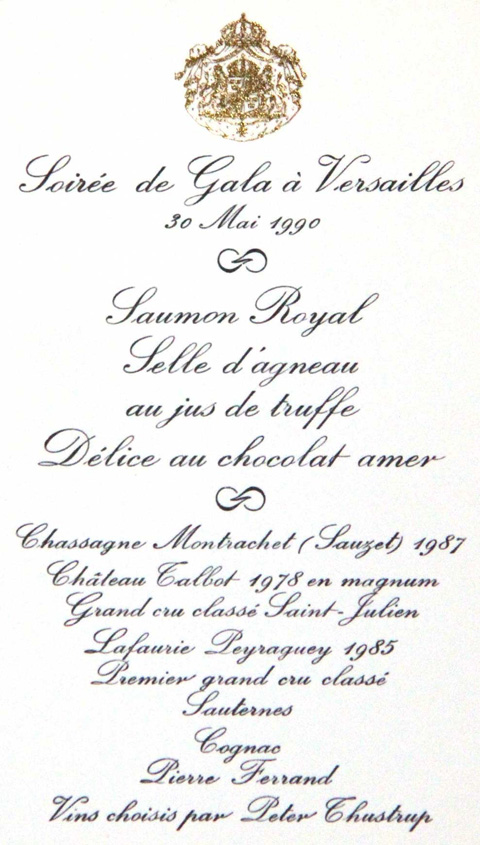 Soirée de Gala à Versailles
30 Mai 1990
Saumon Royal
Selle d'agneau
au jus de truffe
Délice au chocolat amer
Chassagne Montrachet (Sauzet) 1987
Château Talbot 1978 en magnum
Grand cru classé Saint-Julien
Lafaurie Peyraguey 1985
Premier grand cru classé
Sauternes
Cognac
Pierre Ferrand
Vins choisis par Peter Thustrup